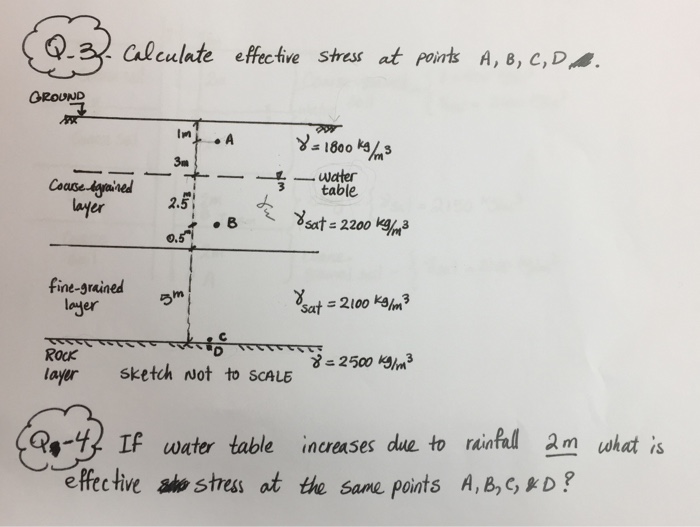 Q-3. Calculate effective stress at points A, B, C, D.
GROUND
1m
A
γ = 1800 kg/m³
3m
water
table
3
Coarse-grained
layer
2.5m
B
γsat = 2200 kg/m³
0.5m
fine-grained
layer
5m
γsat = 2100 kg/m³
C
D
ROCK
layer
γ = 2500 kg/m³
sketch Not to SCALE
Q-4 If water table increases due to rainfall 2m what is
effective stress at the same points A, B, C, & D?